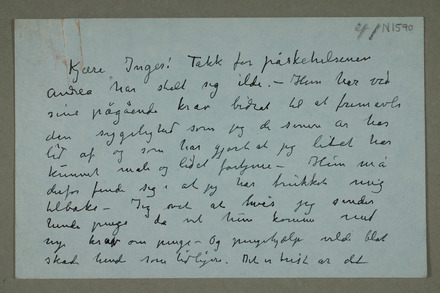 N1590
Kjære Inger! Takk for påskehilsenen
Andrea har stelt sig ilde. – Hun har ved
sine pågående krav bidrat til at fremavle
den sygelighed som jeg de senere år har
lid af og som har gjort at jeg litet har
kunnet male og lidet fortjene – Hun må
derfor finde sig i at jeg har trukket mig
tilbake – Jeg vet at hvis jeg sender
hende penge da vil hun komme med
nye krav om penge – Og pengehjælp vilde blot
skade hende som tidligere. Det er trist at det